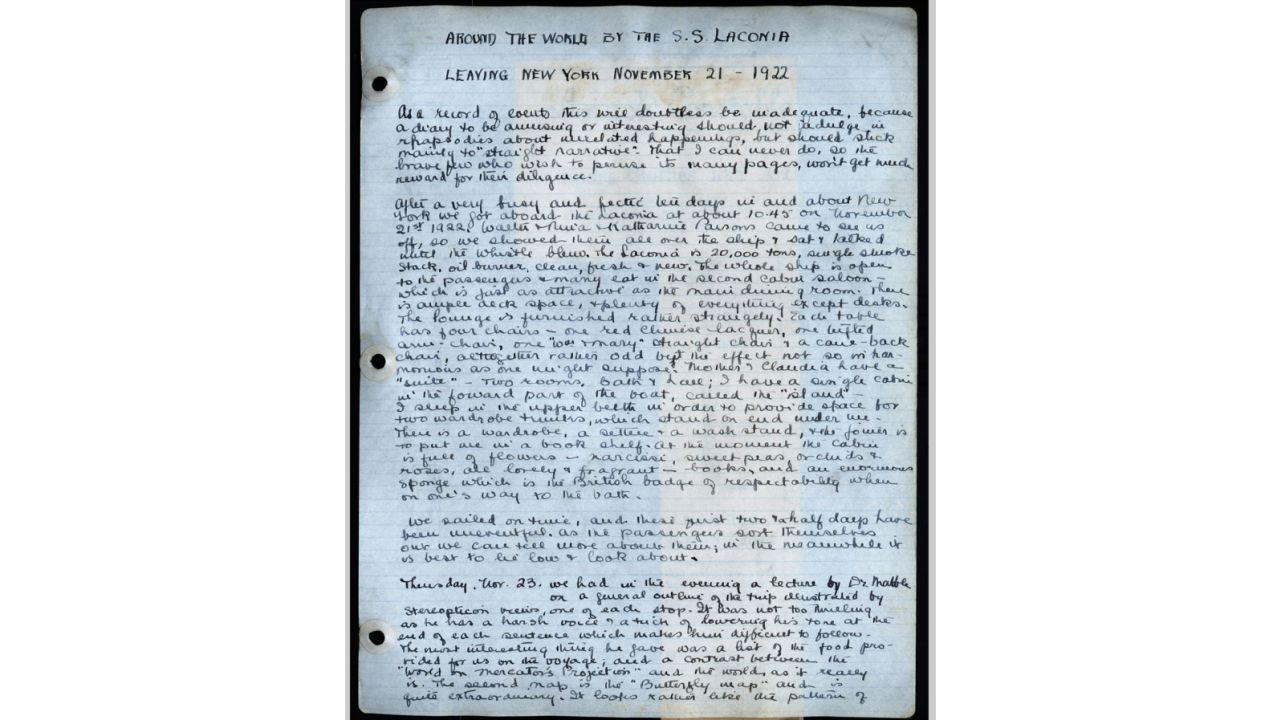 AROUND THE WORLD BY THE S.S. LACONIA
LEAVING NEW YORK NOVEMBER 21 - 1922
As a record of events this will doubtless be inadequate, because
a diary to be amusing or interesting should not indulge in
rhapsodies about unrelated happenings, but should stick
mainly to "straight narrative". That I can never do, so the
brave few who wish to peruse its many pages, won't get much
reward for their diligence.
After a very busy and hectic ten days in and about New
York we got aboard the Laconia at about 10.45 on November
21st 1922. Walter & & Katharine Parsons came to see us
off, so we showed them all over the ship & sat & talked
until the whistle blew. The Laconia is 20,000 tons, single smoke
stack, oil burner, clean, fresh & new. The whole ship is open
to the passengers & many eat in the second cabin saloon -
which is just as attractive as the main dining room. There
is ample deck space, & plenty of everything except desks.
The lounge is furnished rather strangely. Each table
has four chairs - one red Chinese lacquer, one tufted
arm-chair, one "Wm & Mary" straight chair & a cane-back
chair, altogether rather odd but the effect not so inhar-
monious as one might suppose. Mother & Claudia have a
"suite" - two rooms, bath & hall; I have a single cabin
in the foward part of the boat, called the "island" -
I sleep in the upper berth in order to provide space for
two wardrobe trunks, which stand on end under me.
There is a wardrobe, a settee & a wash stand, & the joiner is
to put me in a book shelf. At the moment the cabin
is full of flowers - narcissi, sweet peas, orchids &
roses, all lovely & fragrant - books, and an enormous
sponge which is the British badge of respectability when
on one's way to the bath.
We sailed on time, and these first two & a half days have
been uneventful. As the passengers sort themselves
out we can tell more about them; in the meanwhile it
is best to lie low & look about.
Thursday. Nov. 23. We had in the evening a lecture by Dr.
on a general outline of the trip illustrated by
stereopticon views, one of each stop. It was not too thrilling
as he has a harsh voice & a trick of lowering his tone at the
end of each sentence which makes him difficult to follow.
The most interesting thing he gave was a list of the food pro-
vided for us on the voyage; and a contrast between the
"World on Mercator's Projection" and the world as it really
is. The second map is the "Butterfly map" and is
quite extraordinary. It looks rather like the pattern of